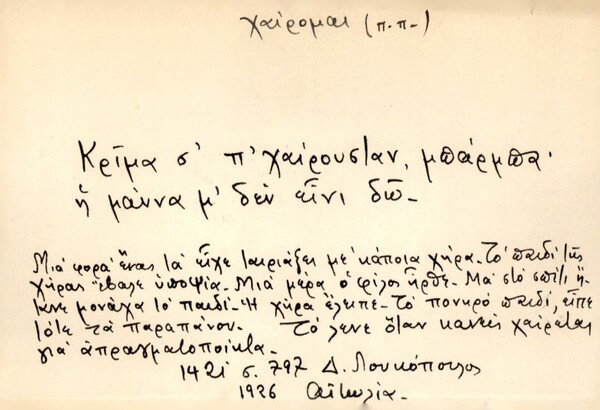 χαίρομαι (π.π-)
Κρῖμα σ' π' χαίρουσταν, μπάρμπα·
ἡ μάννα μ' δέν εἶνι δῶ-
Μιά φορά ἕνας τά εἶχε ταιριάξει μέ κάποια χήρα. Τό παιδί τῆς
χήρας ἔβαλε ὑποψία. Μιά μέρα ὁ φίλος ἦρθε. Μά στό σπίτι ἤ-
τανε μονάχα τό παιδί- Ἡ χήρα ἔλειπε- Τό πονηρό παιδί, εἶπε
τότε τά παραπάνου. Τό λένε ὅταν κανείς χαίρεται
γιά ἀπραγματοποίητα-
1421 σ. 797 Δ. Λουκόπουλος
1926 Αἰτωλία.